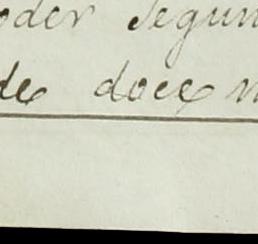 oder segun
de doce m